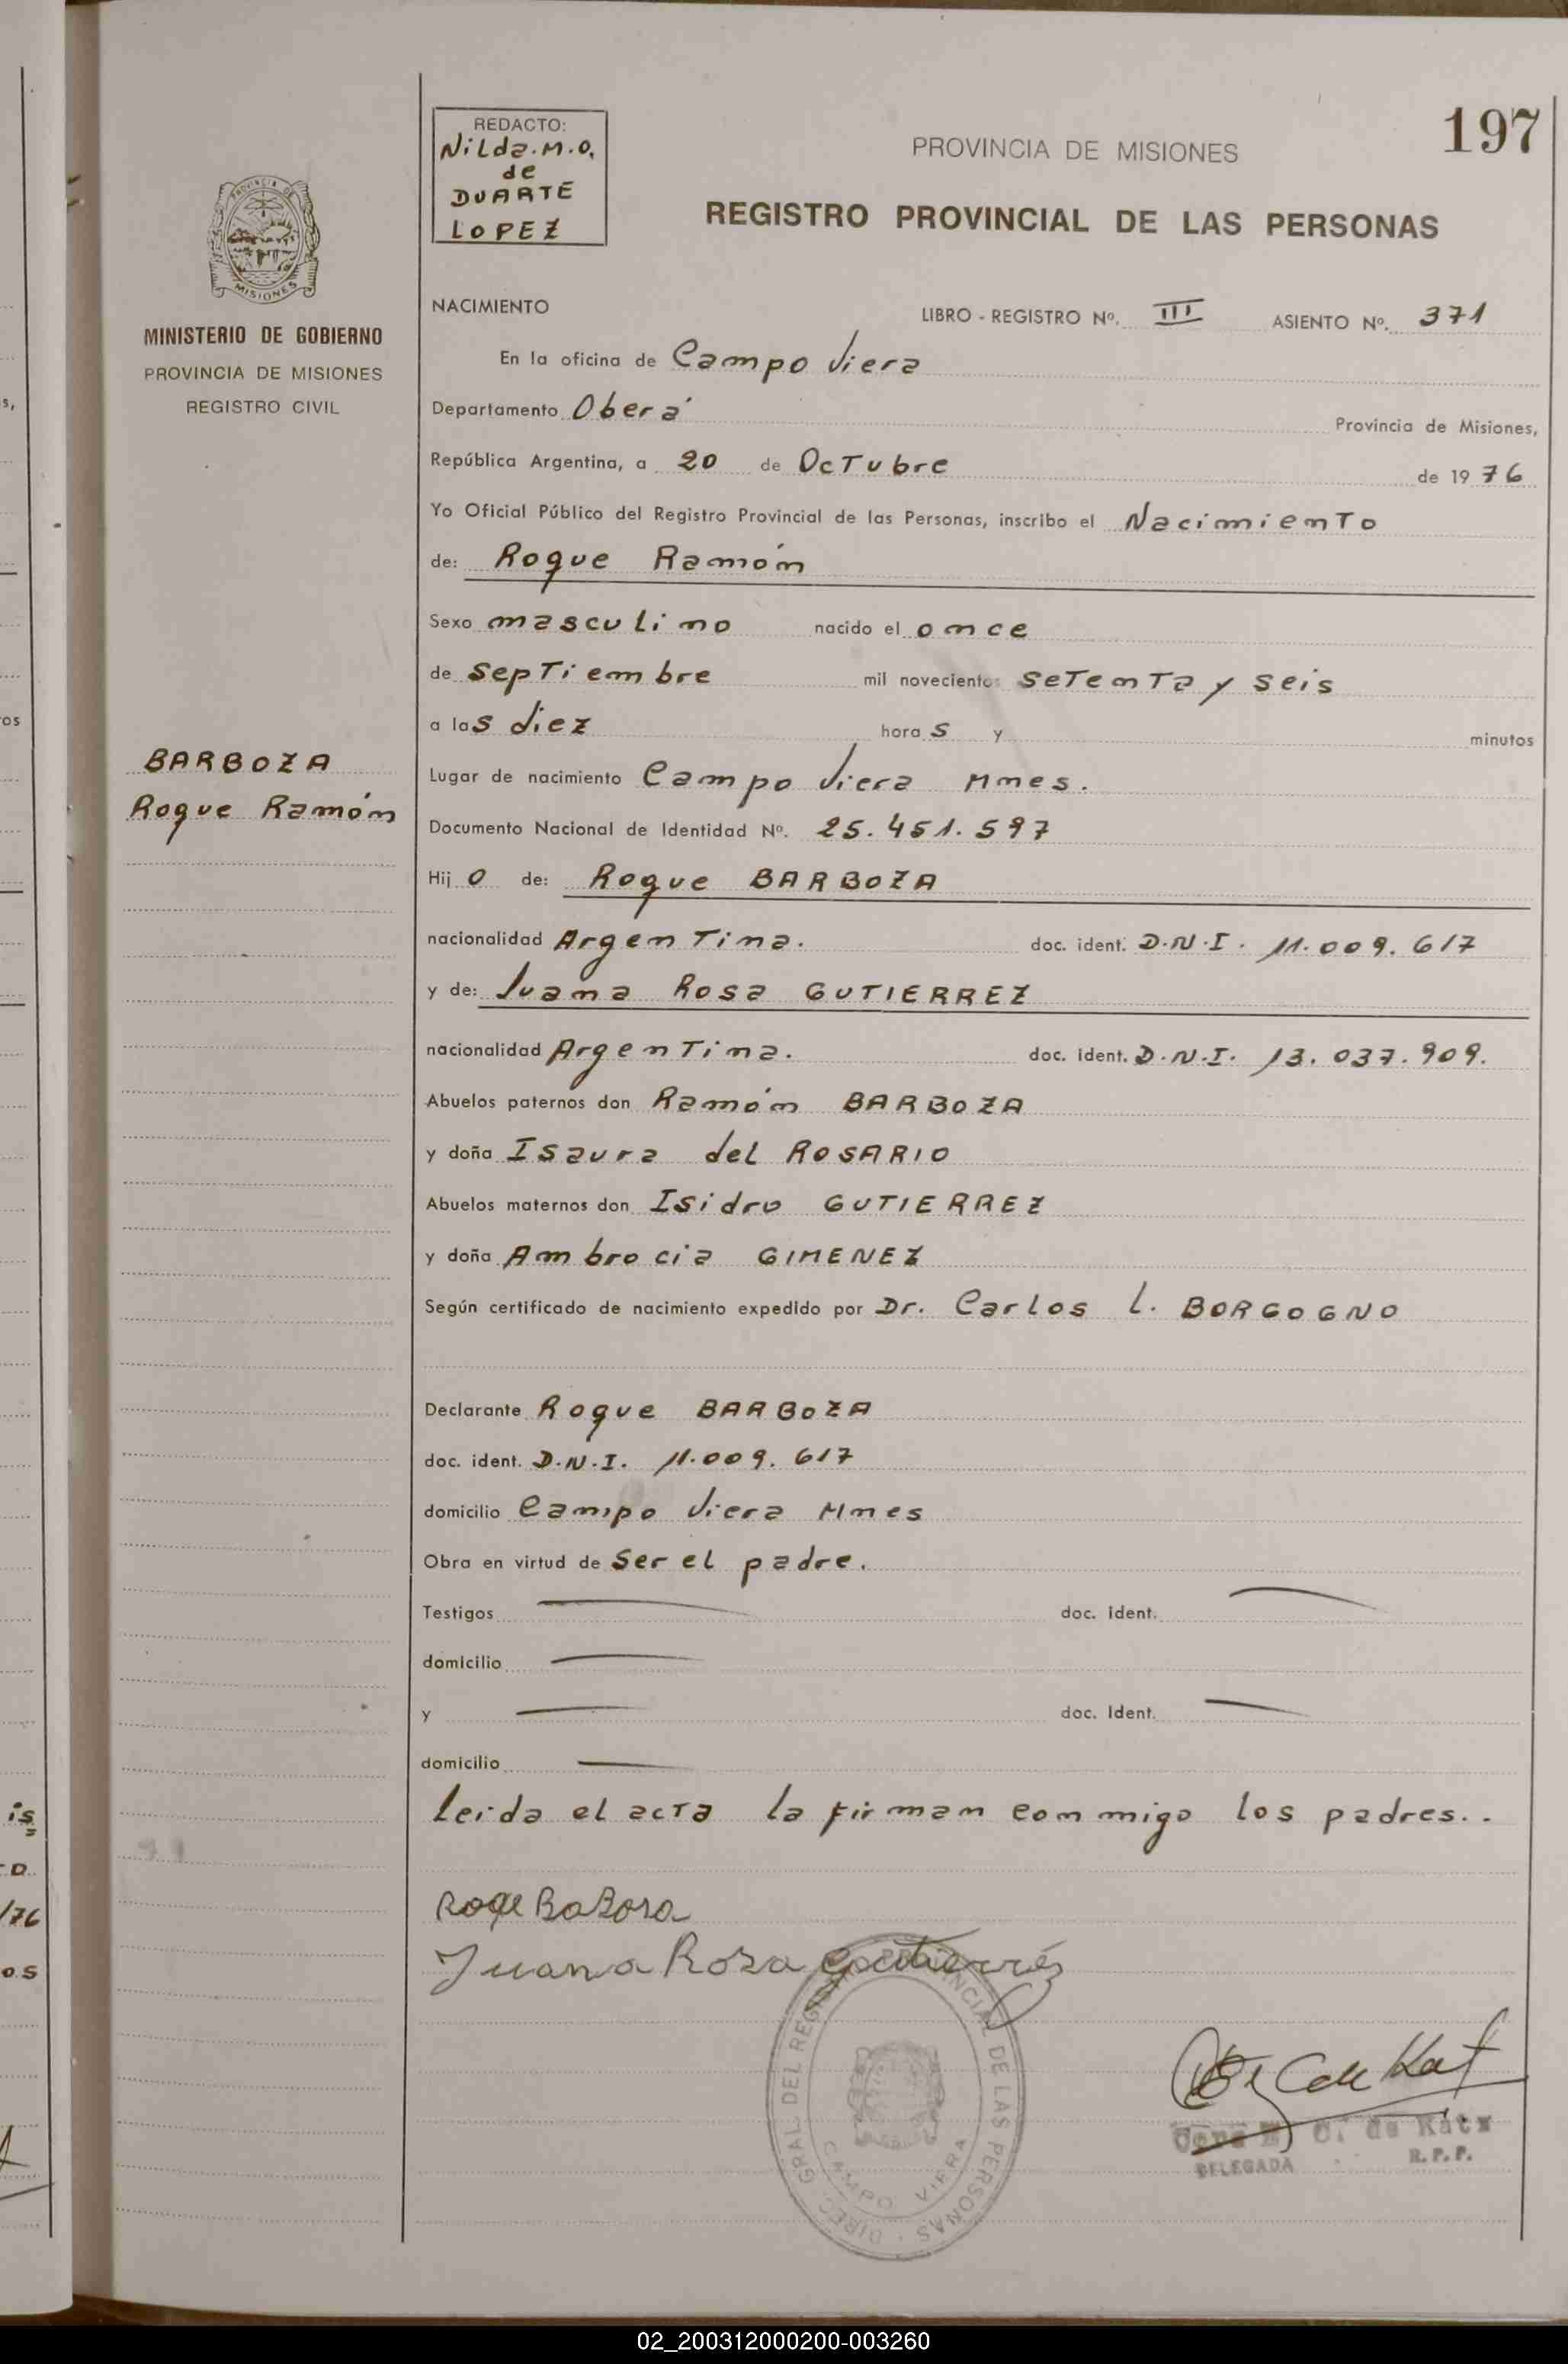 197
REDACTO:
Nilda.M.O.
de
DUARTE
LOPEZ
PROVINCIA DE MISIONES
REGISTRO PROVINCIAL DE LAS PERSONAS
PROVINCIA DE
MISIONES
MINISTERIO DE GOBIERNO
PROVINCIA DE MISIONES
REGISTRO CIVIL
NACIMIENTO LIBRO - REGISTRO Nº. III ASIENTO Nº. 371
En la oficina de Campo Viera
Departamento Oberá Provincia de Misiones,
República Argentina, a 20 de Octubre de 1976
Yo Oficial Público del Registro Provincial de las Personas, inscribo el Nacimiento
de: Roque Ramón
Sexo masculino nacido el once
de septiembre mil novecientos setenta y seis
a las diez horas y minutos
BARBOZA
Roque Ramón
Lugar de nacimiento Campo Viera Mnes.
Documento Nacional de Identidad Nº. 25.451.597
Hijo de: Roque BARBOZA
nacionalidad Argentina. doc. ident. D.N.I. 11.009.617
y de: Juana Rosa GUTIERREZ
nacionalidad Argentina. doc. ident. D.N.I. 13.037.909.
Abuelos paternos don Ramón BARBOZA
y doña Isaura del ROSARIO
Abuelos maternos don Isidro GUTIERREZ
y doña Ambrocia GIMENEZ
Según certificado de nacimiento expedido por Dr. Carlos L. BORGOGNO
Declarante Roque BARBOZA
doc. ident. D.N.I. 11.009.617
domicilio Campo Viera Mnes
Obra en virtud de ser el padre.
Testigos doc. ident.
domicilio
y doc. Ident.
domicilio
Leida el acta la firman conmigo los padres..
Roqe BaBosa
Juana Rosa Gutierréz
DIREC. GRAL DEL REGISTRO PROVINCIAL DE LAS PERSONAS
CAMPO VIERA
C. de Katz
DELEGADA R.P.P.
02_200312000200-003260